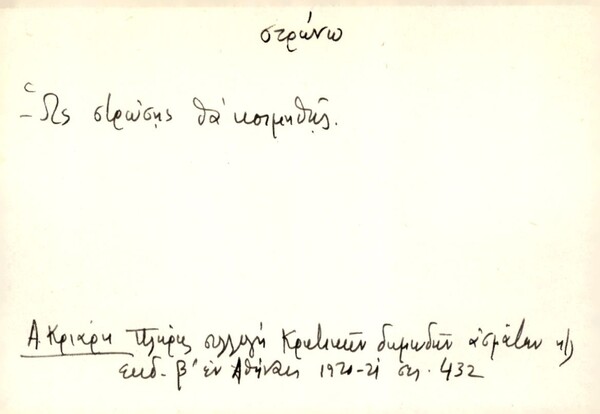 στρώνω
- Ὡς στρώσῃς θὰ κοιμηθῇς.
Α. Κριάρη Πλήρης συλλογή Κρητικῶν δημωδῶν ἀσμάτων κ)λ
Εκδ. β' ἐν Ἀθήναις 1920-21 σελ. 432